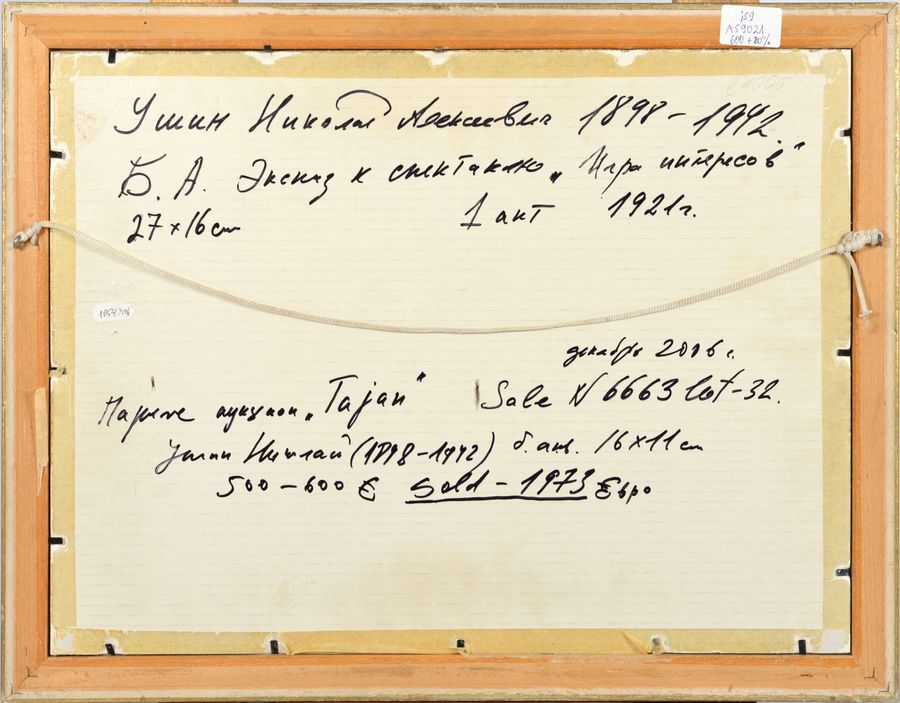 159
A59021
600 + 20%
Ушин Николай Алексеевич 1898-1942
Б. А. Эскиз к спектаклю „Игра интересов"
27×16 cm 1 акт 1921г.
1054204
декабрь 2006 г.
Париж аукцион „Tajan" Sale N 6663 lot-32.
Ушин Николай (1898-1942) б. акв. 16×11 cm
500-600 € Sold-1973 Евро